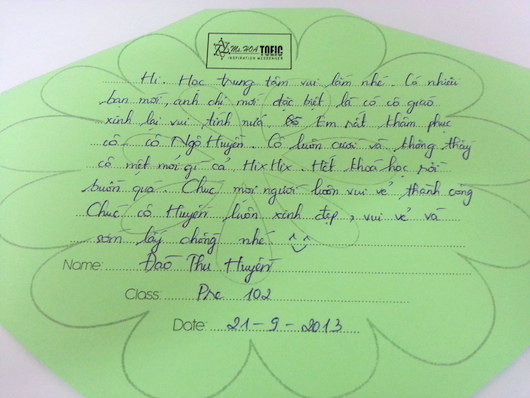 Ms. HOA TOEIC
INSPIRATION MESSENGER
Hi. Học trung tâm vui lắm nhé. Có nhiều
bạn mới, anh chị mới đặc biệt là có cô giáo
xinh lại vui tính nữa. Em rất khâm phục
cô, cô Ngô Huyền. Cô luôn cười và không thấy
cô mệt mỏi gì cả, HixHix. Hết khoá học rồi
buồn quá. Chúc mọi người luôn vui vẻ, thành công
Chúc cô Huyền luôn xinh đẹp, vui vẻ và
sớm lấy chồng nhé ^^
Name: Đào Thu Huyền
Class: Pre 102
Date: 21-9-2013